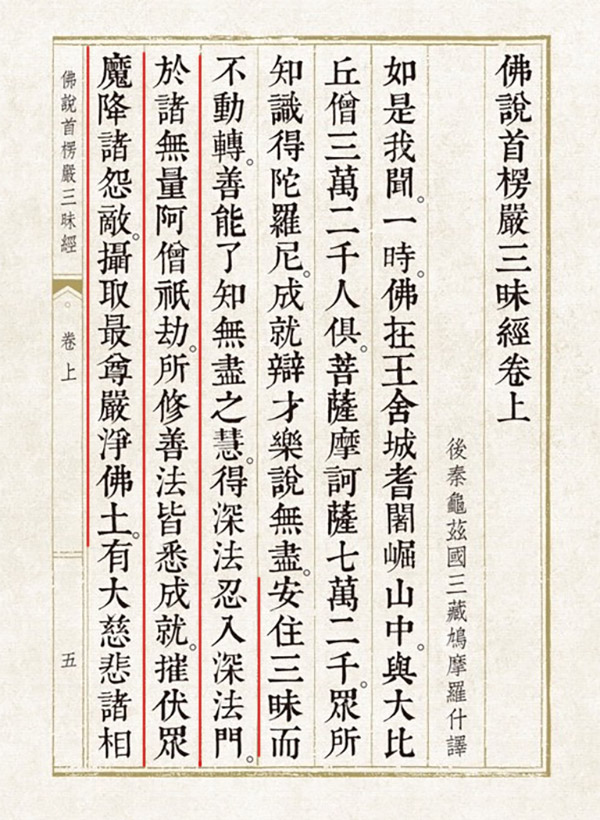 佛說首楞嚴三昧經卷上
後秦龜茲國三藏鳩摩羅什譯
如是我聞。一時。佛在王舍城耆闍崛山中。與大比
丘僧三萬二千人俱。菩薩摩訶薩七萬二千。眾所
知識得陀羅尼。成就辯才樂說無盡。安住三昧而
不動轉。善能了知無盡之慧。得深法忍入深法門。
於諸無量阿僧祇劫。所修善法皆悉成就。摧伏眾
魔降諸怨敵。攝取最尊嚴淨佛土。有大慈悲諸相
佛說首楞嚴三昧經
卷上
五